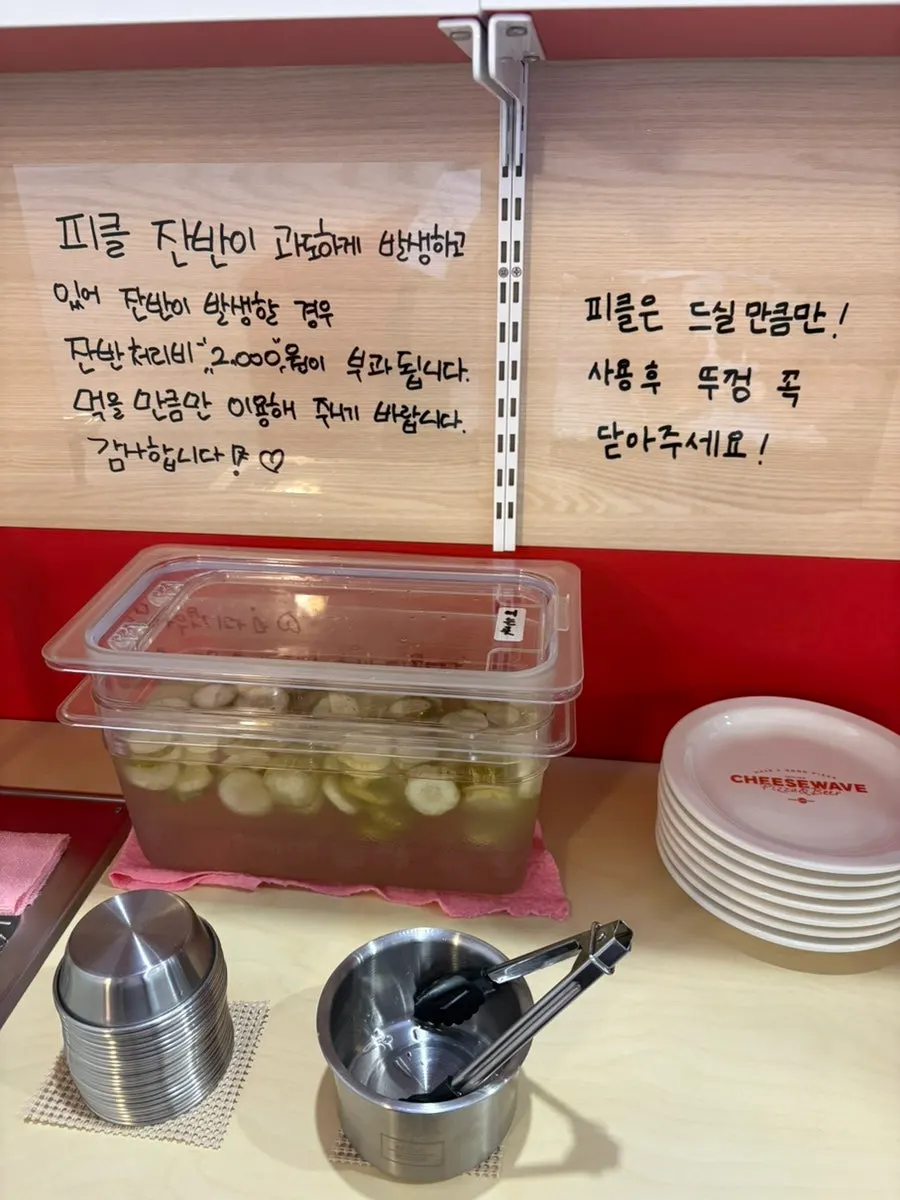 피클 잔반이 과도하게 발생하고
있어 잔반이 발생할 경우
잔반처리비 "2,000"원이 부과됩니다.
먹을 만큼만 이용해 주시기 바랍니다.
감사합니다! ♡
피클은 드실만큼만!
사용 후 뚜껑 꼭
닫아주세요!
CHEESEWAVE
Pizza & Beer